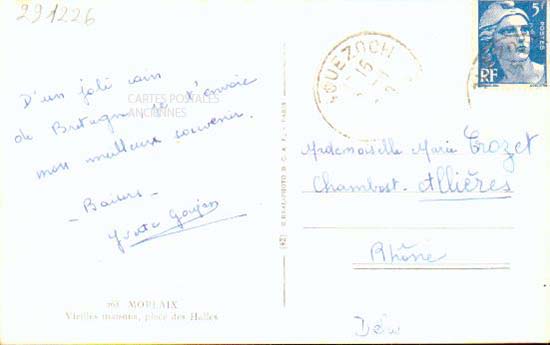 291226
D'un joli coin
de Bretagne je t'envoie
mon meilleur souvenir.
- Baisers -
CARTES POSTALES
ANCIENNES
MORLAIX
Vieilles maisons, place des Halles
5f
POSTES
RF
15
Mademoiselle Marie Trozet
Chambost-Allières
Rhône